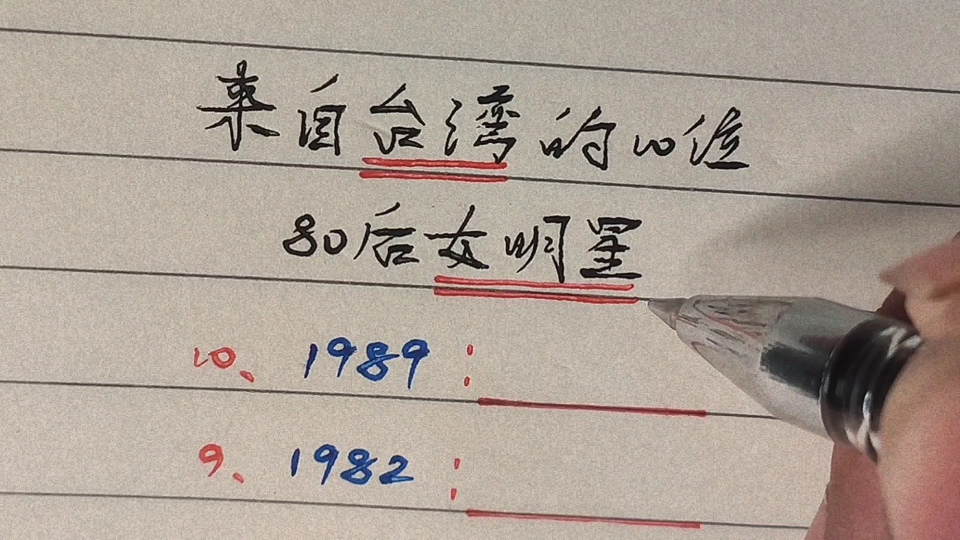 来自台湾的10位
80后女明星
10、1989:
9、1982: